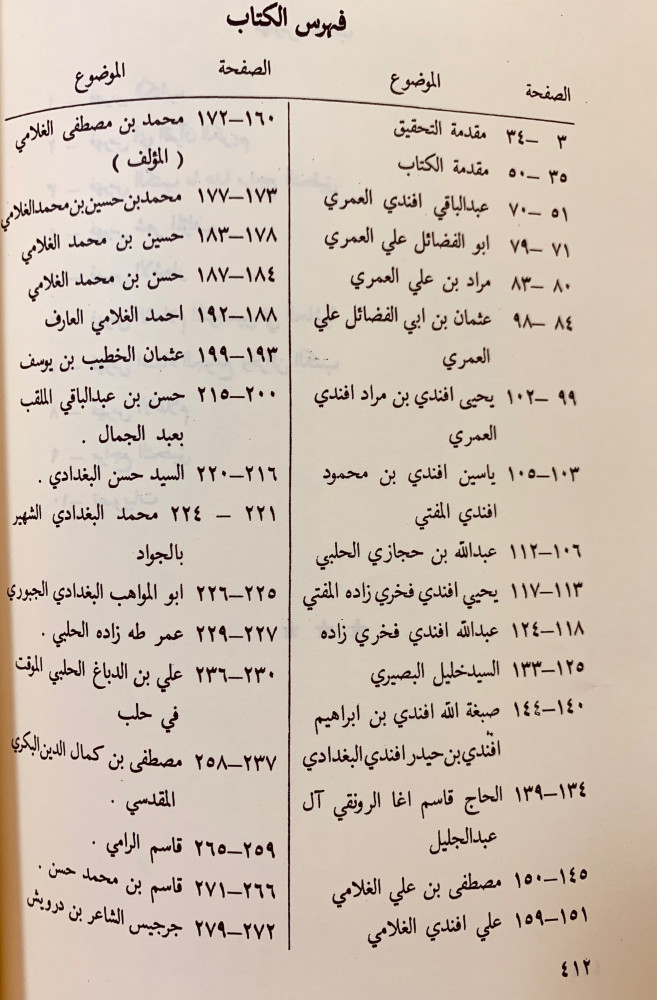 فهرس الكتاب
الصفحة الموضوع
٣ – ٣٤ مقدمة التحقيق
٣٥ – ٥٠ مقدمة الكتاب
٥١ – ٧٠ عبدالباقي افندي العمري
٧١ – ٧٩ ابو الفضائل علي العمري
٨٠ – ٨٣ مراد بن علي العمري
٨٤ – ٩٨ عثمان بن ابي الفضائل علي
العمري
٩٩ – ١٠٢ يحيى افندي بن مراد افندي
العمري
١٠٣–١٠٥ ياسين افندي بن محمود
افندي المفتي
١٠٦–١١٢ عبدالله بن حجازي الحلبي
١١٣–١١٧ يحيي افندي فخري زاده المفتي
١١٨–١٢٤ عبدالله افندي فخري زاده
١٢٥–١٣٣ السيد خليل البصيري
١٤٠–١٤٤ صبغة الله افندي بن ابراهيم
افندي بن حيدر افندي البغدادي
١٣٤–١٣٩ الحاج قاسم اغا الرونقي آل
عبدالجليل
١٤٥–١٥٠ مصطفى بن علي الغلامي
١٥١–١٥٩ علي افندي الغلامي
الصفحة الموضوع
١٦٠–١٧٢ محمد بن مصطفى الغلامي
( المؤلف )
١٧٣–١٧٧ محمد بن حسين بن محمد الغلامي
١٧٨–١٨٣ حسين بن محمد الغلامي
١٨٤–١٨٧ حسن بن محمد الغلامي
١٨٨–١٩٢ احمد الغلامي العارف
١٩٣–١٩٩ عثمان الخطيب بن يوسف
٢٠٠–٢١٥ حسن بن عبدالباقي الملقب
بعبد الجمال .
٢١٦–٢٢٠ السيد حسن البغدادي .
٢٢١ – ٢٢٤ محمد البغدادي الشهير
بالجواد
٢٢٥–٢٢٦ ابو المواهب البغدادي الجبوري
٢٢٧–٢٢٩ عمر طه زاده الحلبي .
٢٣٠–٢٣٦ علي بن الدباغ الحلبي الموقت
في حلب
٢٣٧–٢٥٨ مصطفى بن كمال الدين البكري
المقدسي .
٢٥٩–٢٦٥ قاسم الرامي .
٢٦٦–٢٧١ قاسم بن محمد حسن .
٢٧٢–٢٧٩ جرجيس الشاعر بن درويش
٤١٢